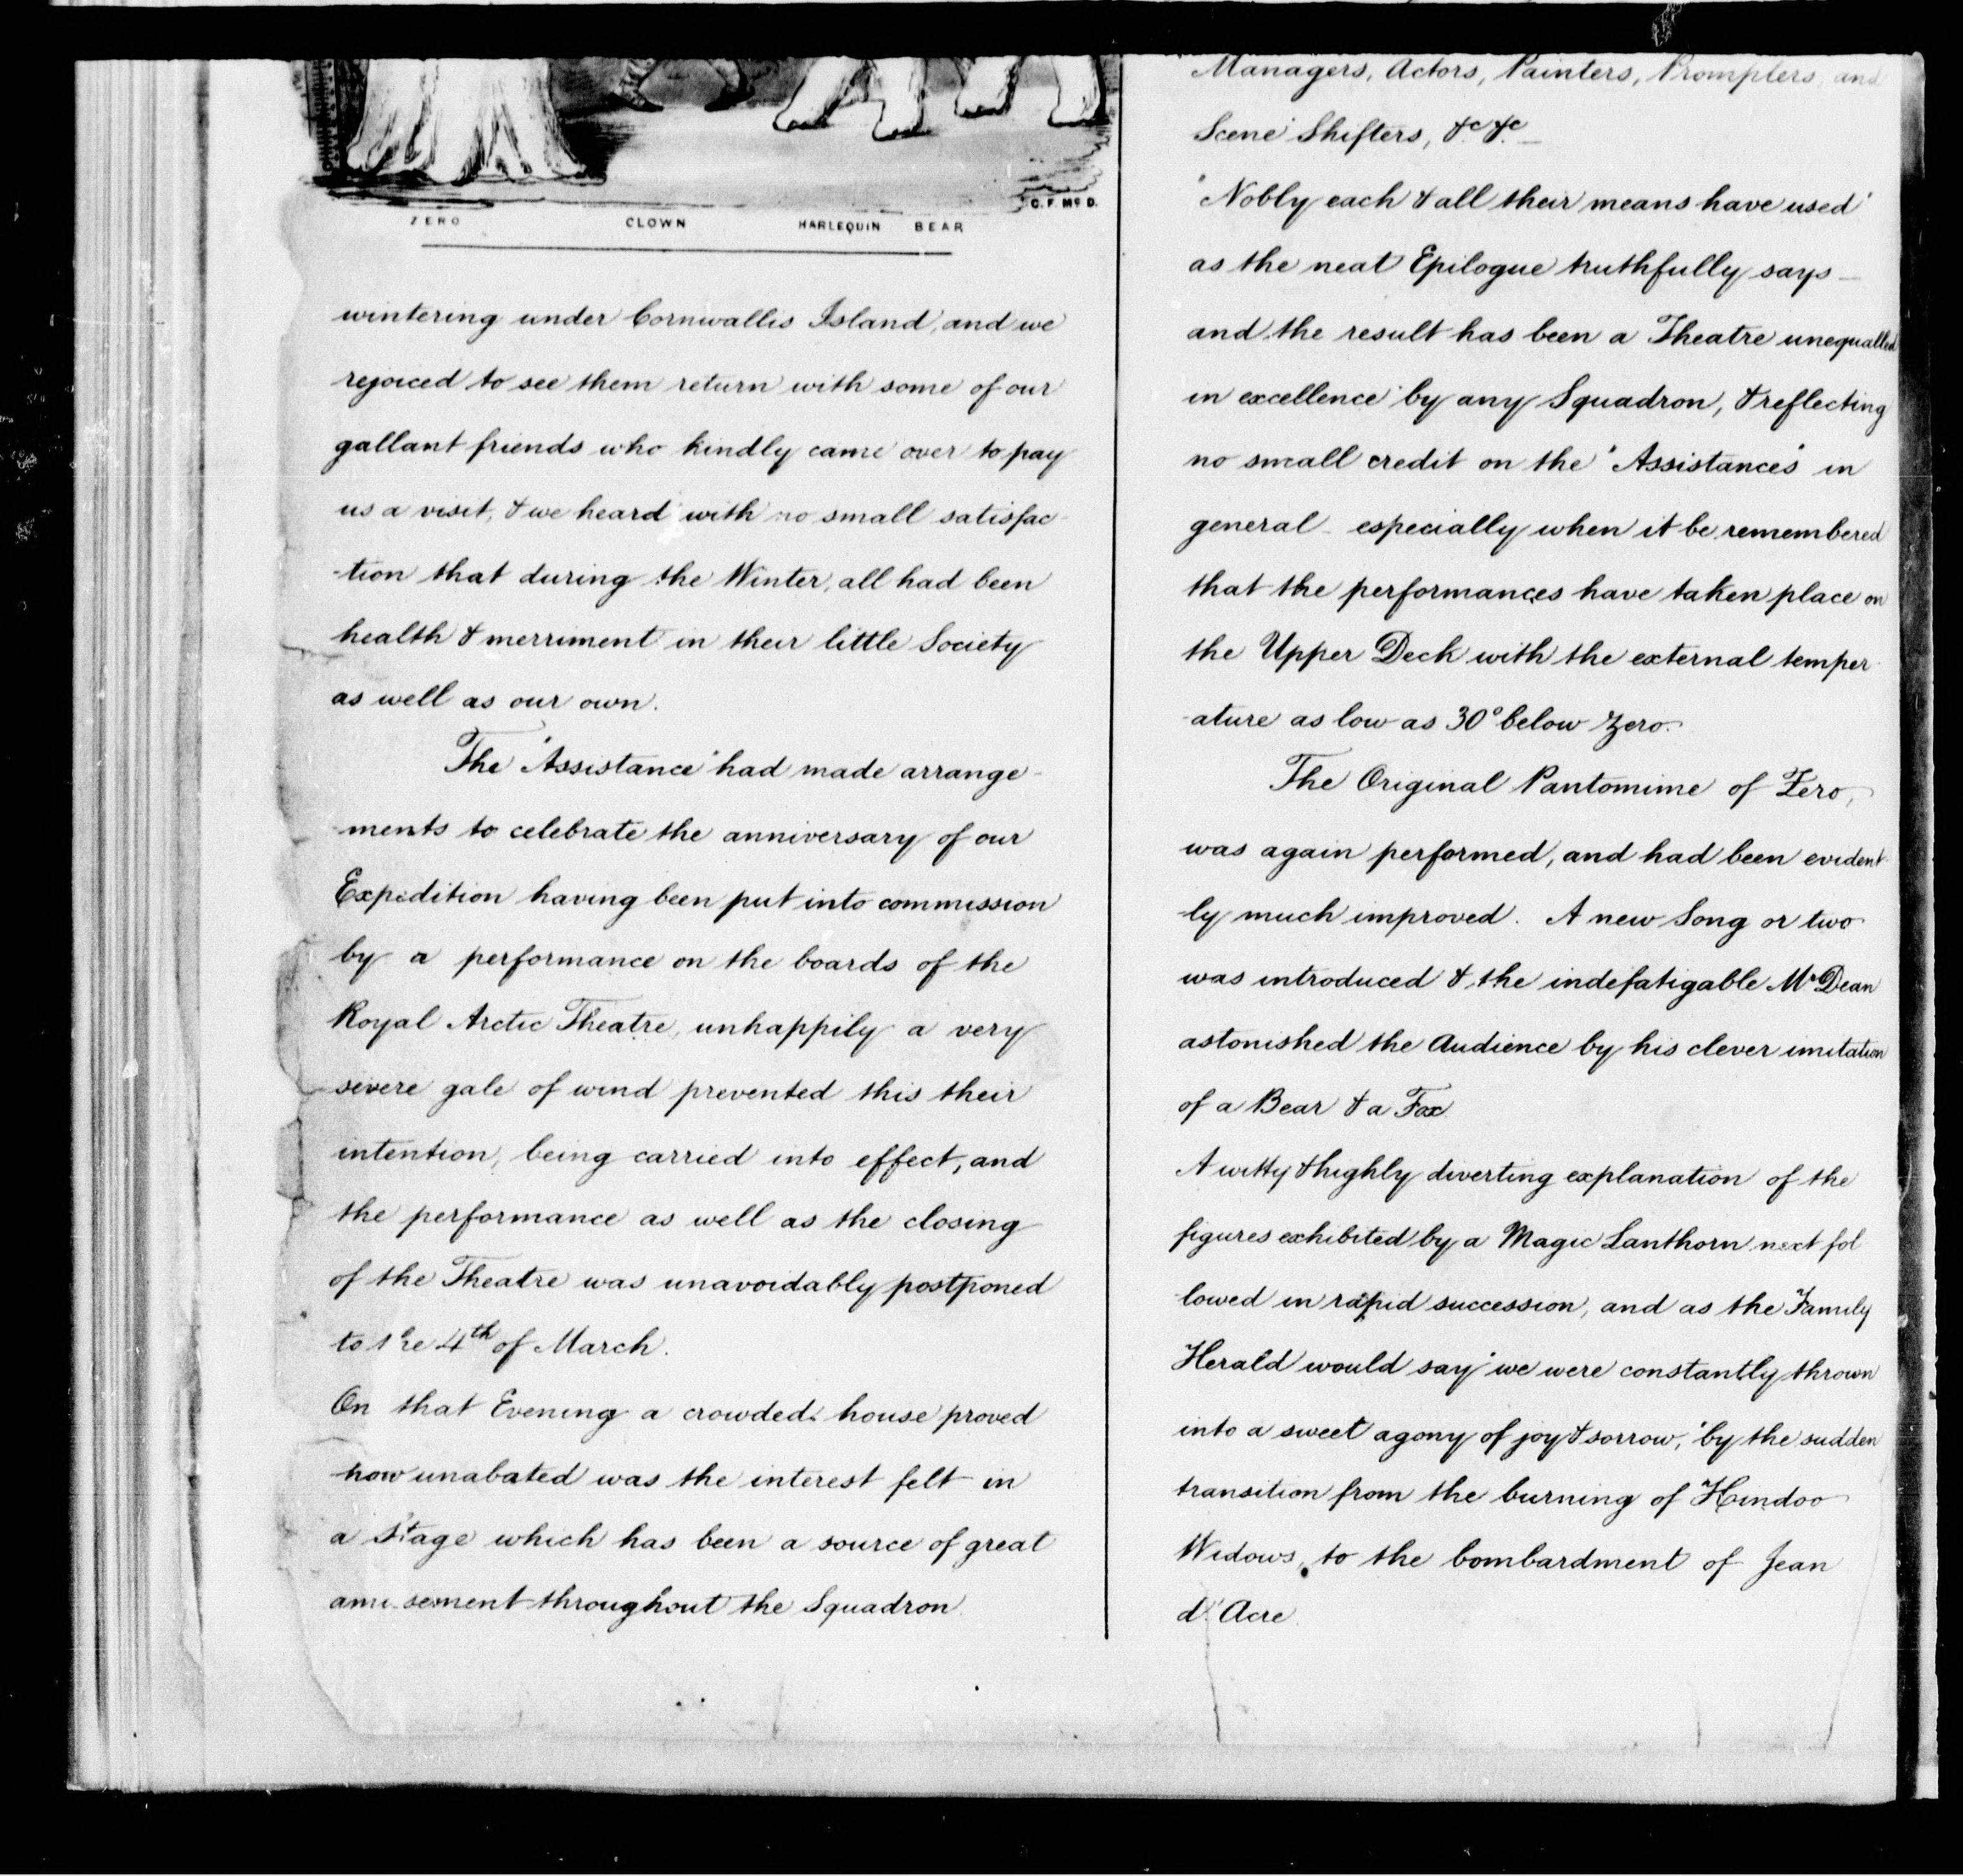 C. F. McD.
ZERO CLOWN HARLEQUIN BEAR
wintering under Cornwallis Island, and we
rejoiced to see them return with some of our
gallant friends who kindly came over to pay
us a visit, & we heard with no small satisfac-
-tion that during the Winter, all had been
health & merriment in their little Society
as well as our own.
The "Assistance" had made arrange-
-ments to celebrate the anniversary of our
Expedition having been put into commission
by a performance on the boards of the
Royal Arctic Theatre, unhappily a very
severe gale of wind prevented this their
intention, being carried into effect, and
the performance as well as the closing
of the Theatre was unavoidably postponed
to the 4th of March.
On that Evening a crowded house proved
how unabated was the interest felt in
a Stage which has been a source of great
amusement throughout the Squadron
Managers, Actors, Painters, Prompters, and
Scene Shifters, &c &c
"Nobly each & all their means have used"
as the neat Epilogue truthfully says -
and the result has been a Theatre unequalled
in excellence by any Squadron, & reflecting
no small credit on the "Assistances" in
general - especially when it be remembered
that the performances have taken place on
the Upper Deck with the external temper-
-ature as low as 30° below Zero.
The Original Pantomime of Zero,
was again performed, and had been evident-
-ly much improved. A new Song or two
was introduced & the indefatigable Mr Dean
astonished the Audience by his clever imitation
of a Bear & a Fox.
A witty & highly diverting explanation of the
figures exhibited by a Magic Lanthorn next fol
lowed in rapid succession, and as the Family
Herald would say "we were constantly thrown
into a sweet agony of joy & sorrow," by the sudden
transition from the burning of Hindoo
Widows, to the bombardment of Jean
d'Acre.